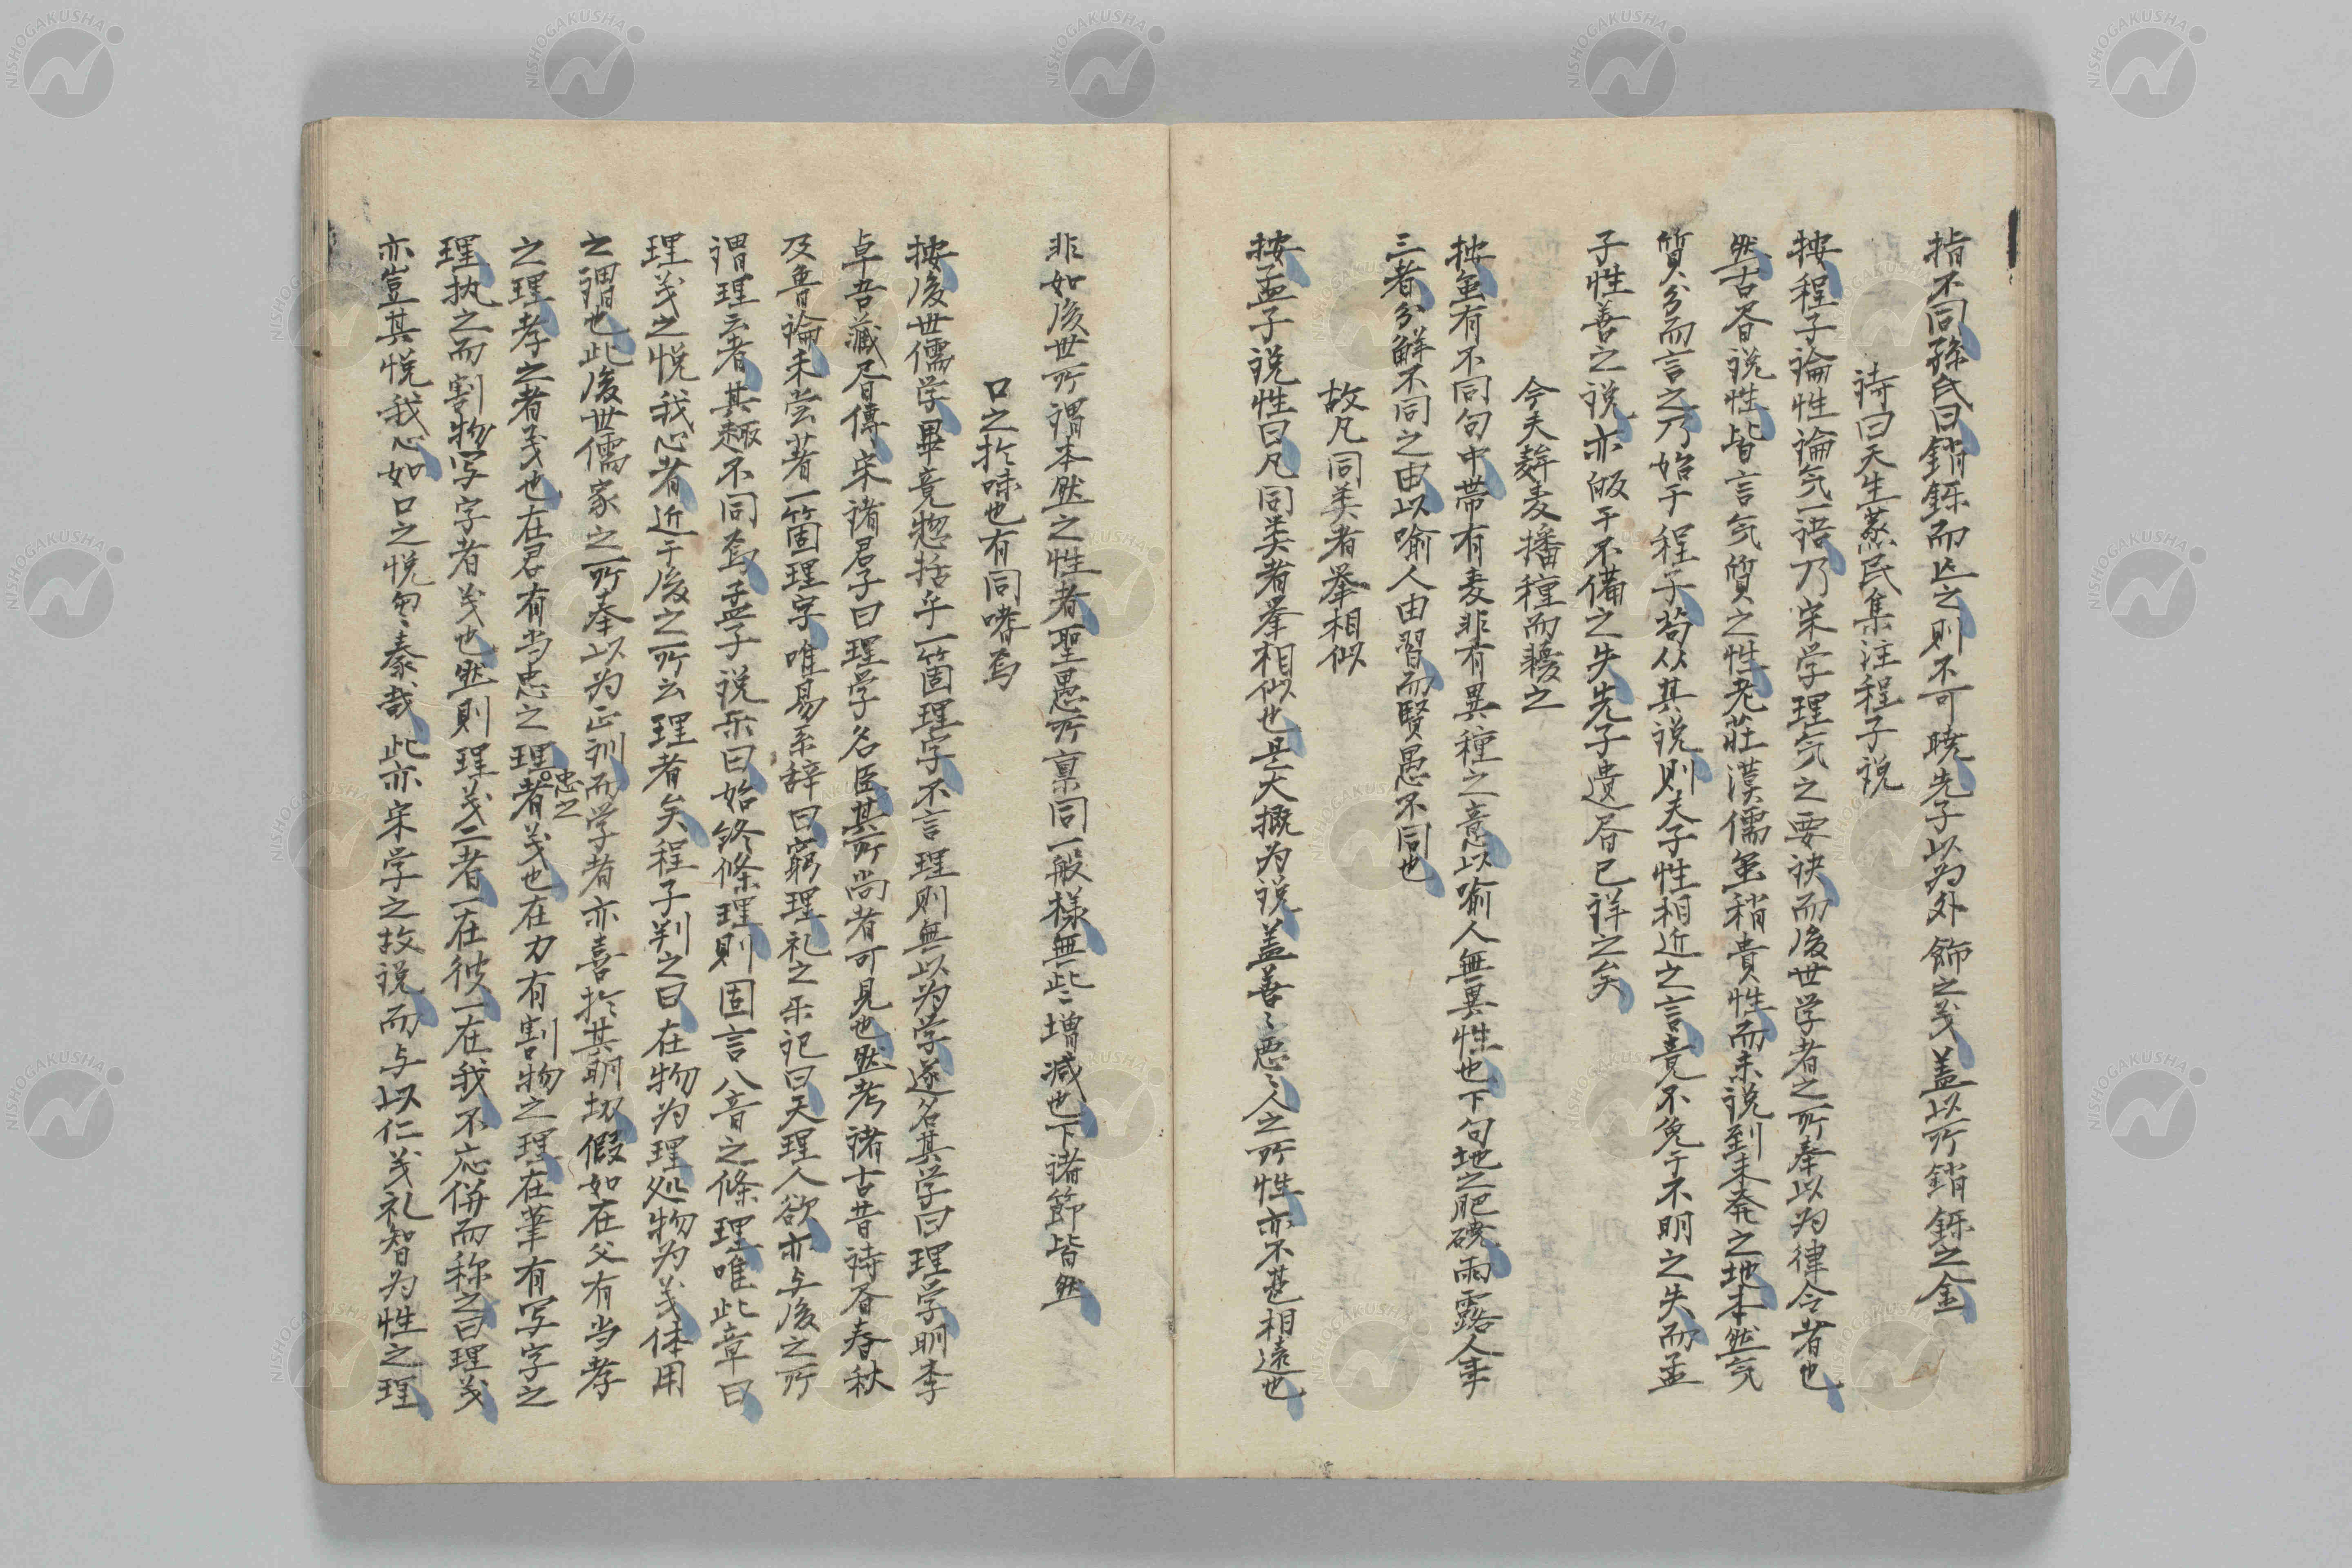 指不同孫氏曰銷鑠而亡之則不可暁先子以為外飾之義盖以所銷鑠之金
詩曰天生蒸民集注程子説
按程子論性論気一語乃宋学理気之要訣而後世学者之所奉以為律令者也
然古昔説性皆言気質之性老荘漢儒虽稍貴性而未説到未発之地本然気
質分而言之乃始于程子苟从其説則夫子性相近之言竟不免于不明之失而孟
子性善之説亦皈于不備之失先子遺昏已詳之矣
今夫麰麦播種而耰之
按虽有不同句中帯有麦非有異種之意以喻人無異性也下句地之肥磽雨露人事
三者分解不同之由以喻人由習而賢愚不同也
故凡同类者挙相似
按孟子説性曰凡同类者挙相似也是大概为説盖善々悪々人之所性亦不甚相遠也
非如後世所謂本然之性者聖愚所禀同一般様無些増減也下諸節皆然
口之於味也有同嗜焉
按後世儒学畢竟惣括乎一箇理字不言理則無以为学遂名其学曰理学明李
卓吾藏昏傳宋諸君子曰理学名臣其所尚者可見也然考諸古昔詩昏春秋
及魯論未尝著一箇理字唯易系辞曰窮理礼之乐記曰天理人欲亦与後之所
謂理云者其趣不同焉孟子説乐曰始終條理則固言八音之條理唯此章曰
理義之悦我心者近于後之所云理者矣程子判之曰在物为理処物为義体用
之謂也此後世儒家之所奉以为正訓而学者亦喜於其明切假如在父有当孝
之理孝之者義也在君有当忠之理忠之者義也在刀有割物之理在筆有写字之
理执之而割物写字者義也然則理義二者一在彼一在我不応併而称之曰理義
亦豈其悦我心如口之悦芻豢哉此亦宋学之故説而与以仁義礼智为性之理